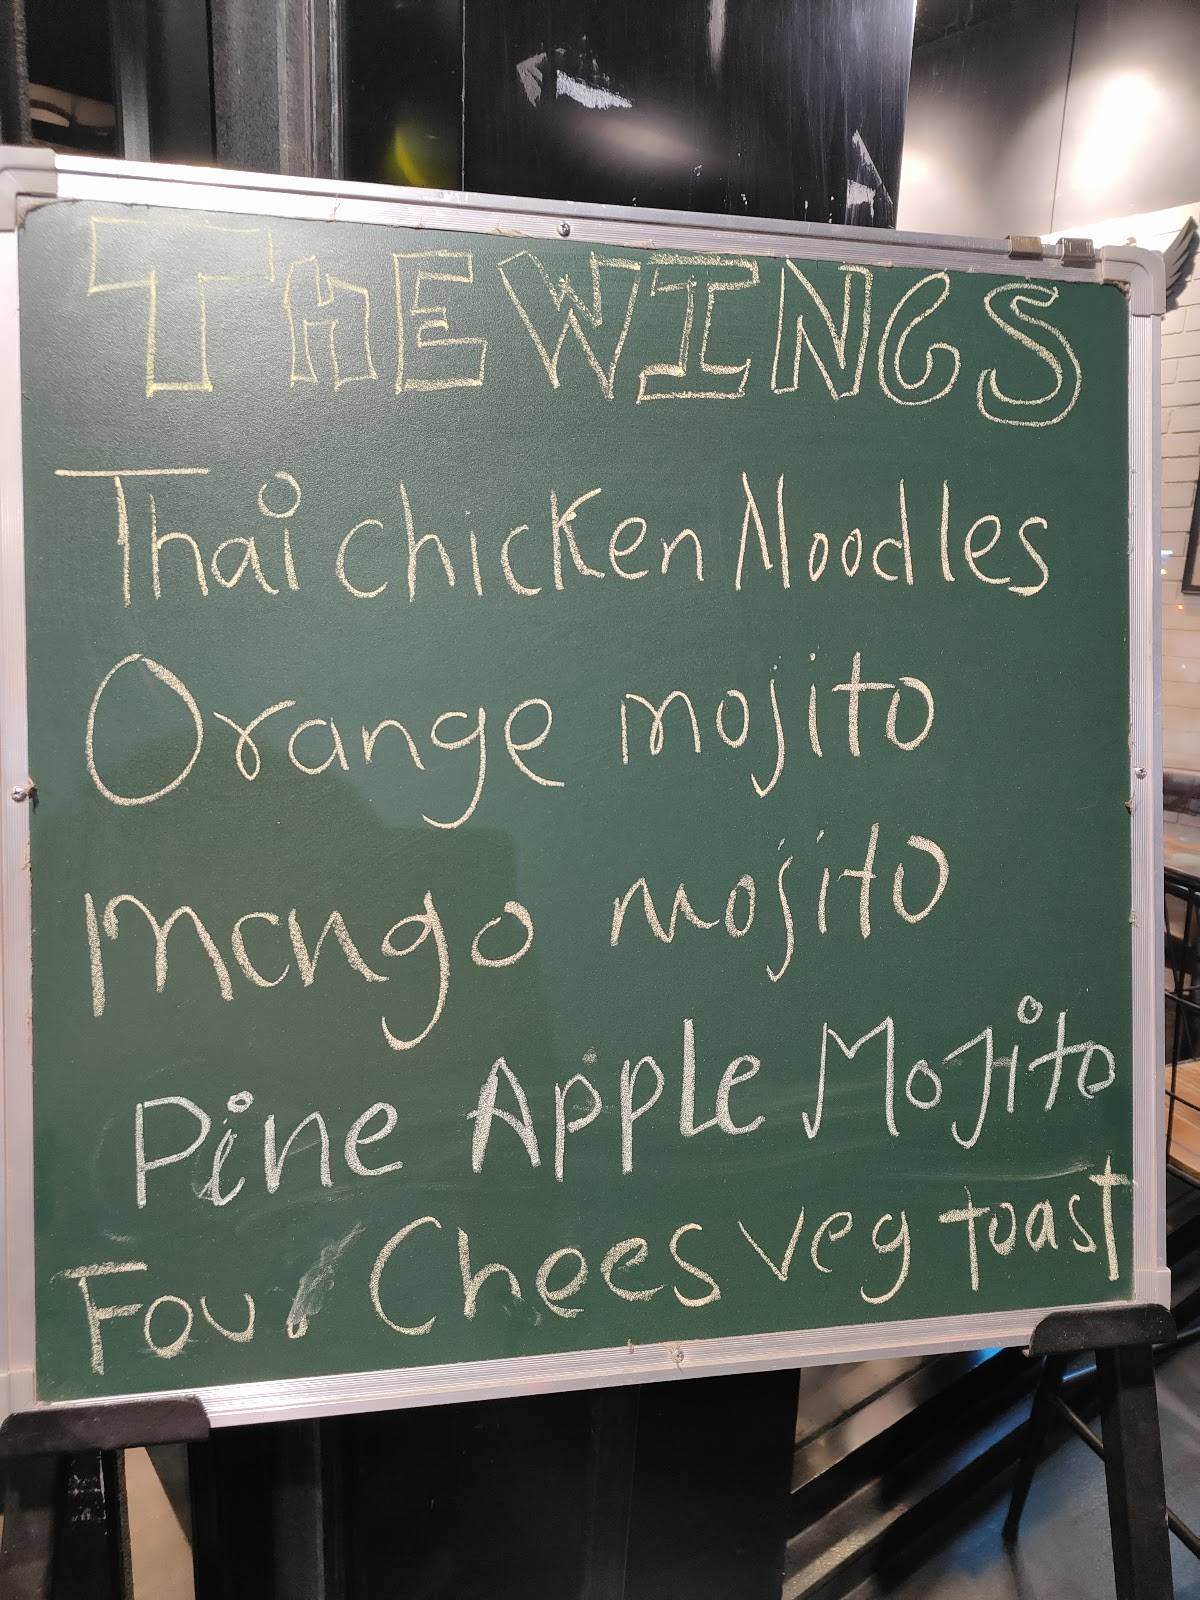 THE WINGS
Thai chicken Noodles
Orange mojito
Mango mojito
Pine Apple Mojito
Four Chees veg toast